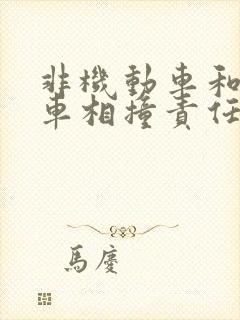 非機動車和
車相撞責任
馬慶